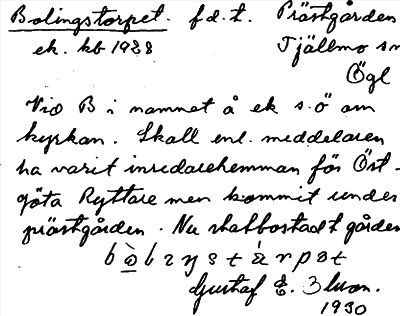 Bolingstorpet. f.d.t. Prästgården
ek. kb 1938 Tjällmo sn
Ögl
Vid B i namnet å ek s.ö om
kyrkan. Skall enl. meddelaren
ha varit inredarehemman för Öst-
göta Ryttare men kommit under
prästgården. Nu statbostad t gården
Gustaf E.
1930